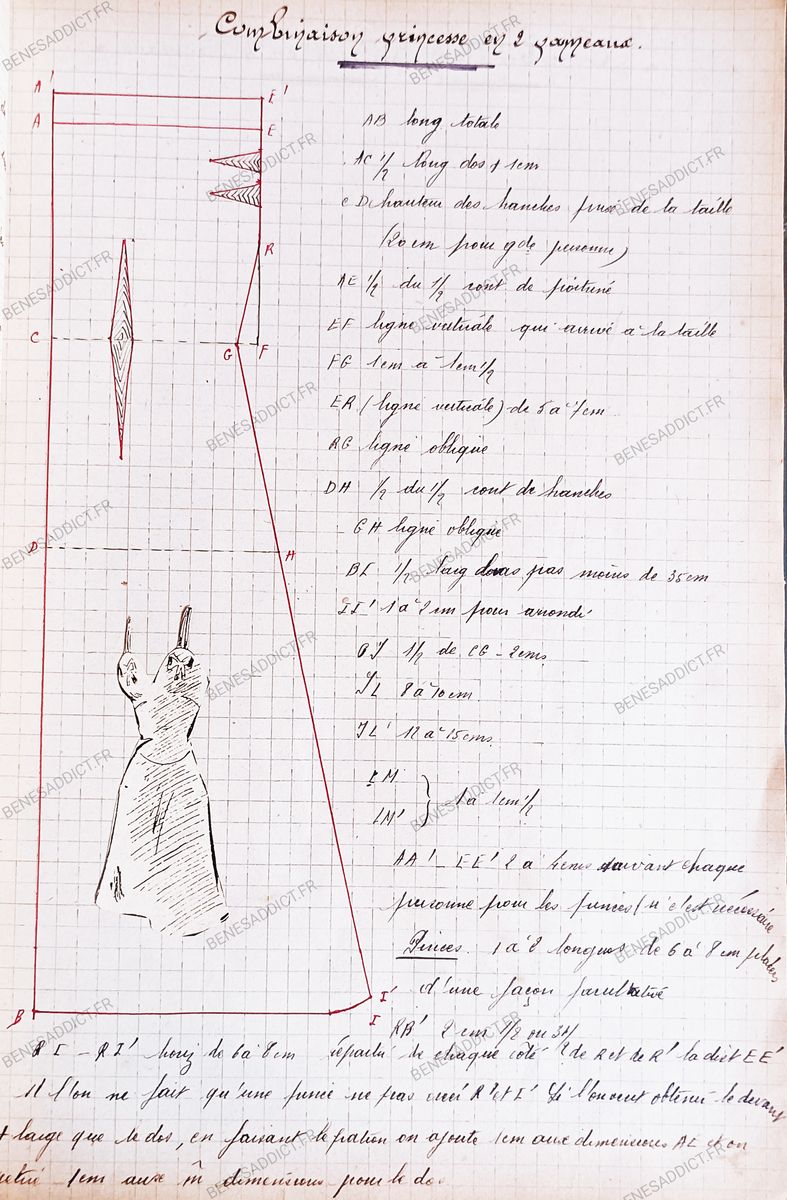 Combinaison princesse en 2 panneaux.
A' E'
A E
R
C G F
D H
B I' I
AB long totale
AC 1/2 long dos + 1cm
CD hauteur des hanches prise de la taille
(20 cm pour gde personne)
AE 1/2 du 1/2 cont de poitrine
EF ligne verticale qui arrive à la taille
FG 1cm à 1cm 1/2
ER (ligne verticale) de 5 à 7cm
RG ligne oblique
DH 1/2 du 1/2 cont de hanches
GH ligne oblique
BI 1/2 larg bas pas moins de 35cm
II' 1 à 2 cm pour arrondi
OJ 1/2 de CG - 2cms
JL 8 à 10cm
JL' 12 à 15cms.
LM
LM' } 1 à 1cm 1/2
AA' - EE' 2 à 4cms suivant chaque
personne pour les pinces (si c'est nécessaire
Pinces. 1 à 2 longues de 6 à 8 cm placées
d'une façon facultative
RB' 2 cms 1/2 ou 3
RI - RI' horiz de 6 à 8cm répartir de chaque côté de R et de R' la dist EE'
Si l'on ne fait qu'une pince ne pas créer R' et I' Si l'on veut obtenir le devant
+ large que le dos, en faisant le patron on ajoute 1cm aux dimensions AE et on
1cm aux m dimensions pour le dos
BENESADDICT.FR